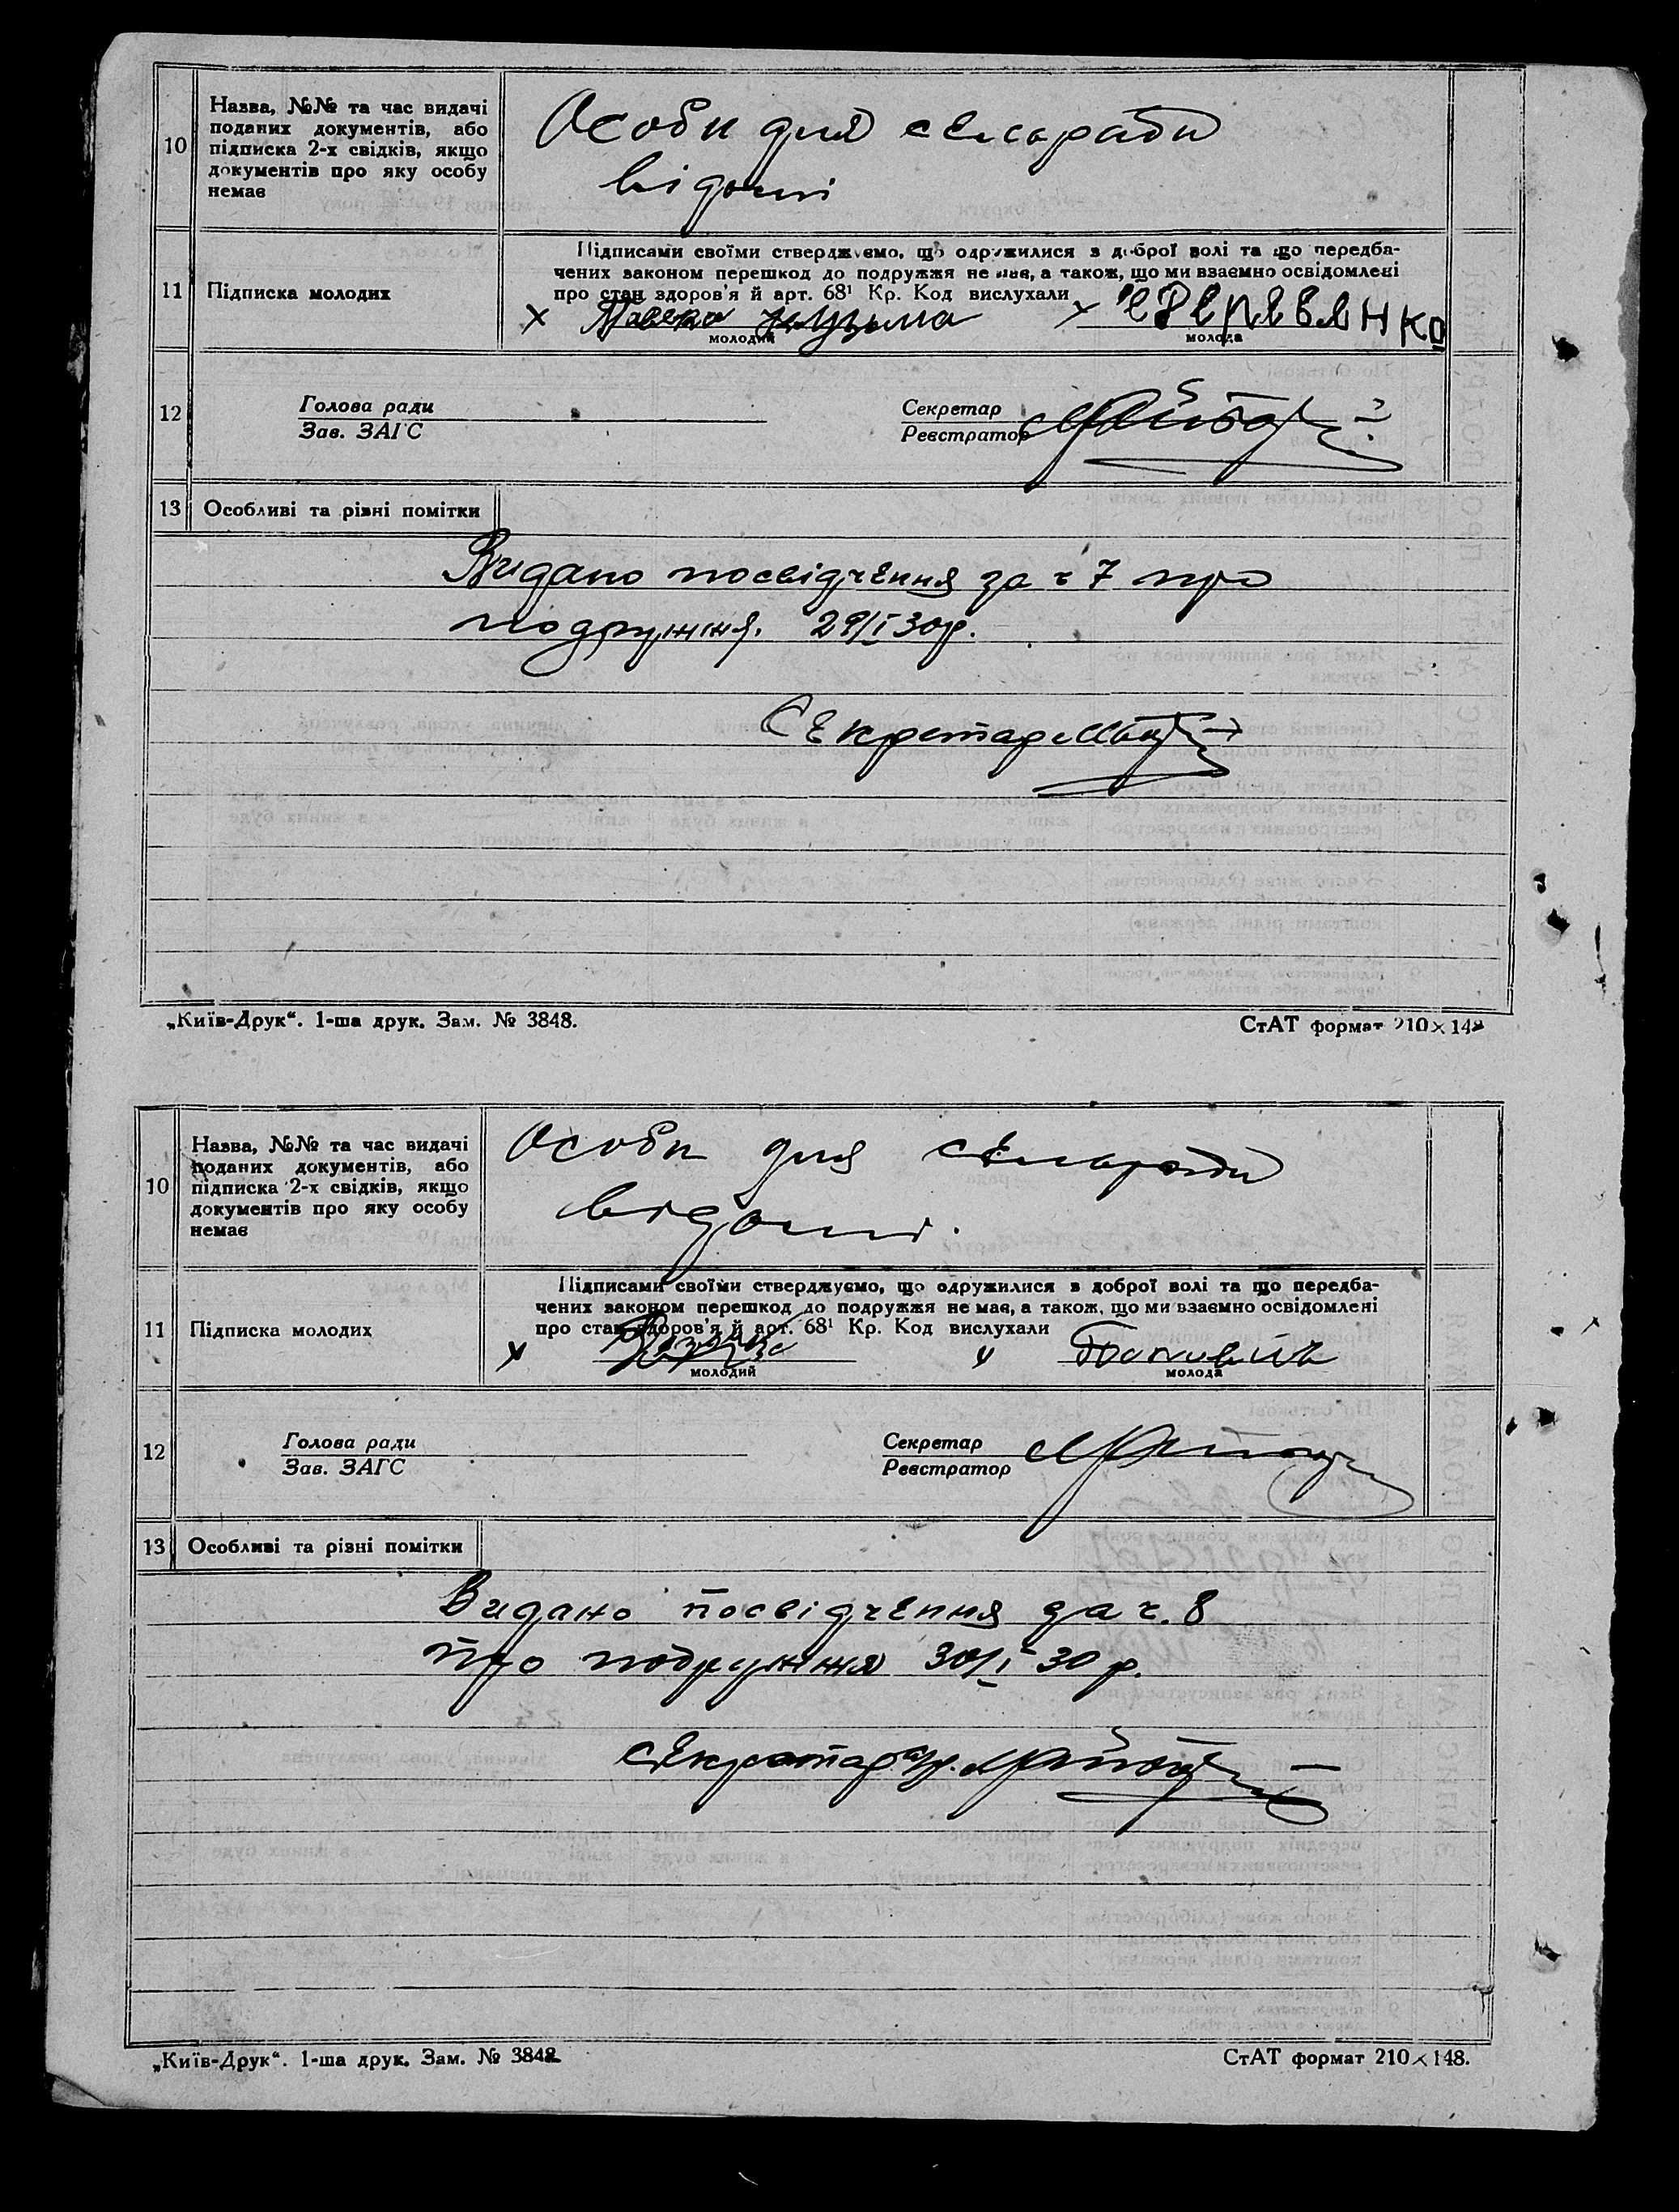 10
Назва, №№ та час видачі
поданих документів, або
підписка 2-х свідків, якщо
документів про яку особу
немає
Особи для сельради
відомі
11
Підписка молодих
Підписами своїми стверджуємо, що одружилися з доброї волі та що передба-
чених законом перешкод до подружжя не має, а також, що ми взаємно освідомлені
про стан здоров'я й арт. 68¹ Кр. Код вислухали
молодий
молода
12
Голова ради
Зав. ЗАГС
Секретар
Реєстратор
13
Особливі та різні помітки
Видано посвідчення за ч 7 про
подружжя. 29/I 30р.
Секретар
„Київ-Друк“. 1-ша друк. Зам. № 3848.
СтАТ формат 210×148
10
Назва, №№ та час видачі
поданих документів, або
підписка 2-х свідків, якщо
документів про яку особу
немає
Особи для сельради
відомі.
11
Підписка молодих
Підписами своїми стверджуємо, що одружилися з доброї волі та що передба-
чених законом перешкод до подружжя не має, а також, що ми взаємно освідомлені
про стан здоров'я й арт. 68¹ Кр. Код вислухали
молодий
молода
12
Голова ради
Зав. ЗАГС
Секретар
Реєстратор
13
Особливі та різні помітки
Видано посвідчення за ч. 8
про подружжя 30/I 30 р.
Секретар
„Київ-Друк“. 1-ша друк. Зам. № 3848
СтАТ формат 210×148.